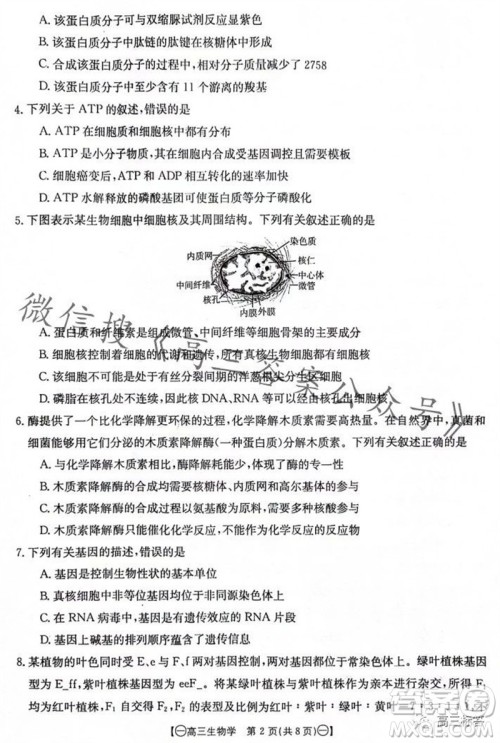 A. 该蛋白质分子可与双缩脲试剂发生显紫色
B. 该蛋白质分子中肽链的肽键在核糖体中形成
C. 合成该蛋白质分子的过程中,相对分子质量减少了 2758
D. 该蛋白质分子中至少含有 11 个游离的羧基
4. 下列关于 ATP 的叙述,错误的是
A. ATP 在细胞质和细胞核中均有分布
B. ATP 是小分子物质,细胞内合成 ATP 无需受基因调控和
C. ATP 与 ADP 的相互转化机制在所有生物的细胞内是一样的
D. ATP 水解释放的磷酸基团可使蛋白质等分子磷酸化
5. 下图表示某生物细胞中细胞核及其周围结构。下列有关叙述正确的是
染色质
内质网
核仁
中心体
中间纤维
微管
核孔
内膜 外膜
A. 蛋白质和纤维素是组成微管、中间纤维等细胞骨架的主要成分
B. 细胞核控制着细胞的代谢和遗传,所有真核细胞都有细胞核
C. 该图所示结构可来自于有丝分裂间期的洋葱根尖分生区细胞
D. 磷脂在核孔处不连续,RNA、DNA 可以经由核孔出细胞核
6. 酶提供了一个比化学降解更环保的过程,化学降解木质素需要高热量。在自然界中,真菌和
细菌能够使用它们分泌的木质素降解酶(一种蛋白质)分解木质素。下列有关叙述正确的是
A. 与化学降解木质素相比,酶促降解反应更彻底
B. 木质素降解酶的合成均需要核糖体、内质网和高尔基体的参与
C. 木质素降解酶的合成过程以氨基酸为原料,同时需要消耗能量
D. 木质素降解酶只能催化化学反应,不可能作为化学反应的反应物
7. 下列有关基因的描述,错误的是
A. 基因是控制生物性状的基本单位
B. 真核细胞中的等位基因均位于非同源染色体上
C. 在 RNA 病毒中,基因是有遗传效应的 RNA 片段
D. 基因上碱基的排列顺序可代表遗传信息
8. 某植物的叶色同时受 E、e 与 F、f 两对基因控制,这两对基因独立遗传。绿叶植株基因
型为 E_ff,紫叶植株基因型为 eeF_。将绿叶植株与紫叶植株作为亲本进行杂交,所得 F₁
均为红叶植株,F₁ 自交得到 F₂
㊀高三生物学 第 2 页(共 8 页)㊀
微信搜《高三答案公众号》